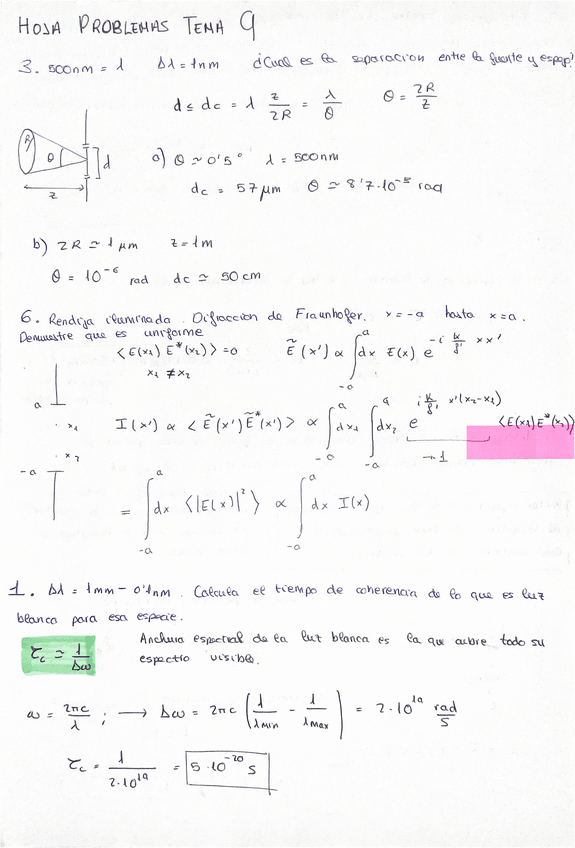 HOJA PROBLEMAS TEMA 9
3. 500nm = λ Δλ = 1nm ¿Cual es la separacion entre la fuente y espejo?
d ≤ dc = λ z/2R = λ/θ θ = 2R/z
R θ d z
a) θ ≃ 0'5° λ = 500nm
dc = 57 μm θ ≃ 8'7·10⁻³ rad
b) 2R ≃ 1 μm z = 1m
θ = 10⁻⁶ rad dc ≃ 50 cm
6. Rendija iluminada. Difraccion de Fraunhofer. x = -a hasta x = a.
Demuestre que es uniforme
⟨E(x₁) E*(x₂)⟩ = 0 Ẽ(x') ∝ ∫₋ₐᵃ dx E(x) e^(-i k/f' xx')
x₁ ≠ x₂
a x₁ x₂ -a
I(x') ∝ ⟨Ẽ(x') Ẽ*(x')⟩ ∝ ∫₋ₐᵃ dx₁ ∫₋ₐᵃ dx₂ e^(i k/f' x'(x₂-x₁)) ⟨E(x₁)E*(x₂)⟩
→ 1
= ∫₋ₐᵃ dx ⟨|E(x)|²⟩ ∝ ∫₋ₐᵃ dx I(x)
1. Δλ = 1mm - 0'1nm. Calcula el tiempo de coherencia de lo que es luz
blanca para esa especie.
τc ≃ 1/Δω Anchura espectral de la luz blanca es la que cubre todo su
espectro visible.
ω = 2πc/λ ; → Δω = 2πc (1/λmin - 1/λmax) = 2·10¹⁹ rad/s
τc = 1/2·10¹⁹ = 5·10⁻²⁰ s